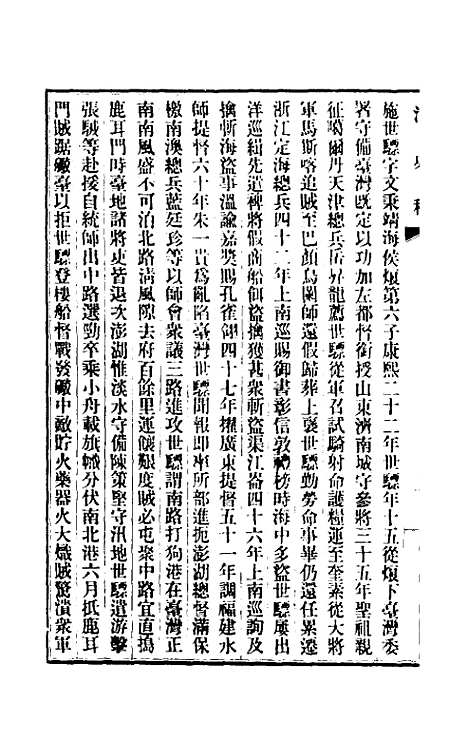 清史稿
施世驃字文秉靖海侯烺第六子康熙二十二年世驃年十五從烺下臺灣委
署守備臺灣既定以功加左都督銜授山東濟南城守參將三十五年聖祖親
征噶爾丹天津總兵岳昇龍薦世驃從軍召試騎射命護糧運至奎素從大將
軍馬斯喀追賊至巴顏烏闌師還假歸葬上褒世驃勤勞命事畢仍還任累遷
浙江定海總兵四十二年上南巡賜御書彰信敦禮榜時海中多盜世驃屢出
洋巡緝先遣裨將假商船餌盜擒獲甚衆斬盜渠江崙四十六年上南巡詢及
擒斬海盜事溫諭嘉獎賜孔雀翎四十七年擢廣東提督五十一年調福建水
師提督六十年朱一貴爲亂陷臺灣世驃聞報卽率所部進扼澎湖總督滿保
檄南澳總兵藍廷珍等以師會衆議三路進攻世驃謂南路打狗港在臺灣正
南南風盛不可泊北路淸風隙去府百餘里運餽艱度賊必屯聚中路宜直搗
鹿耳門時臺地諸將吏皆退次澎湖惟淡水守備陳策堅守汛地世驃遣游擊
張駴等赴援自統師出中路選勁卒乘小舟載旗幟分伏南北港六月抵鹿耳
門賊踞礮臺以拒世驃登樓船督戰發礮中敵貯火藥器火大熾賊驚潰衆軍